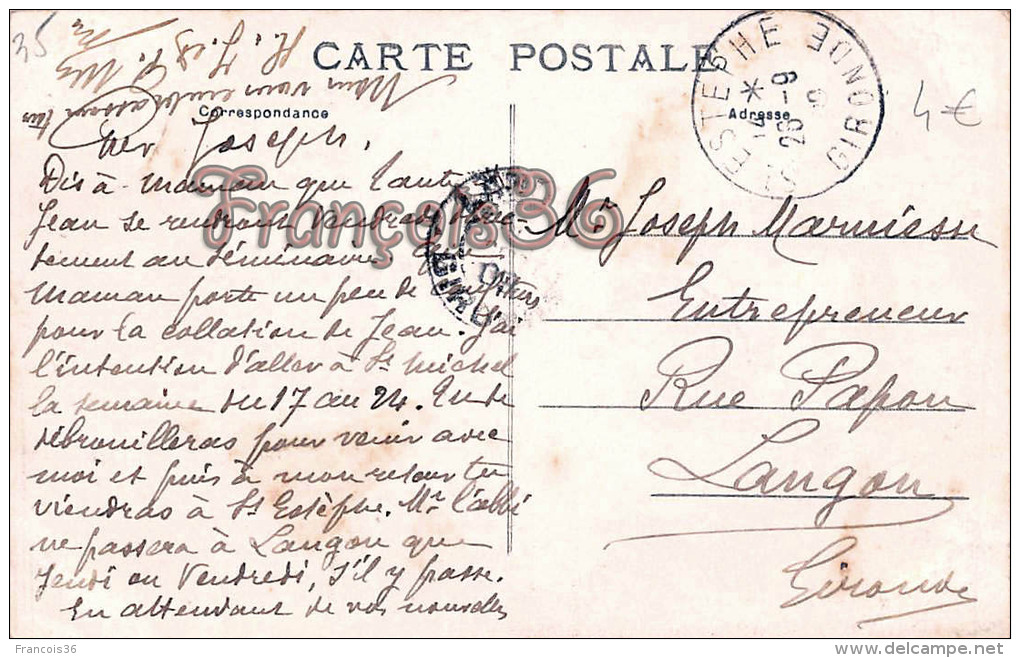 35
CARTE POSTALE
Correspondance
Adresse
4€
Nous vous embrassons tous
Cher Joseph,
Dis à maman que tante
Jean se rendront Vendredi direc-
tement au Séminaire
maman porte un peu de
pour la collation de Jean. J'ai
l'intention d'aller à St Michel
la semaine du 17 au 24. Tu te
débrouilleras pour venir avec
moi et puis à mon retour tu
viendras à St Estèphe. Mr l'abbé
ne passera à Langon que
Jeudi ou Vendredi, s'il y passe.
En attendant de vos nouvelles
Mr Joseph Marmiesse
Entrepreneur
Rue Papon
Langon
Gironde
ESTEPHE GIRONDE
14 *
26 - 9
François36
Francois36
delcampe.net